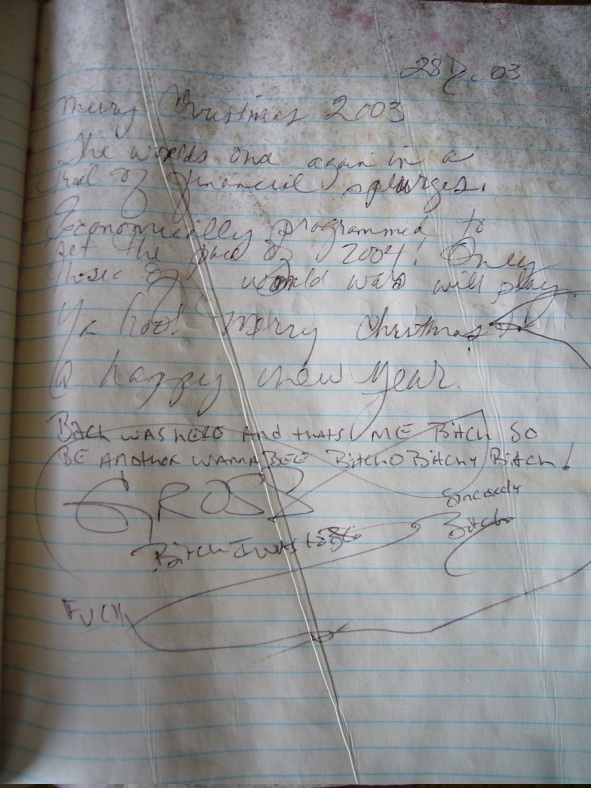 28 D. 03
Merry Christmas 2003
The worlds once again in a
of financial splurges.
Economically programmed to
set the pace of 2004! Only
those of world wars will play
Ya hoo! Merry Christmas
@ happy new year.
BitCH WAS HERE And thats ME BitCH SO
BE ANOthER WANNABEE BitCH O BitCHy BitCH!
GROSS
Sincerely
Bitch
BitCH I WAS
FUCK